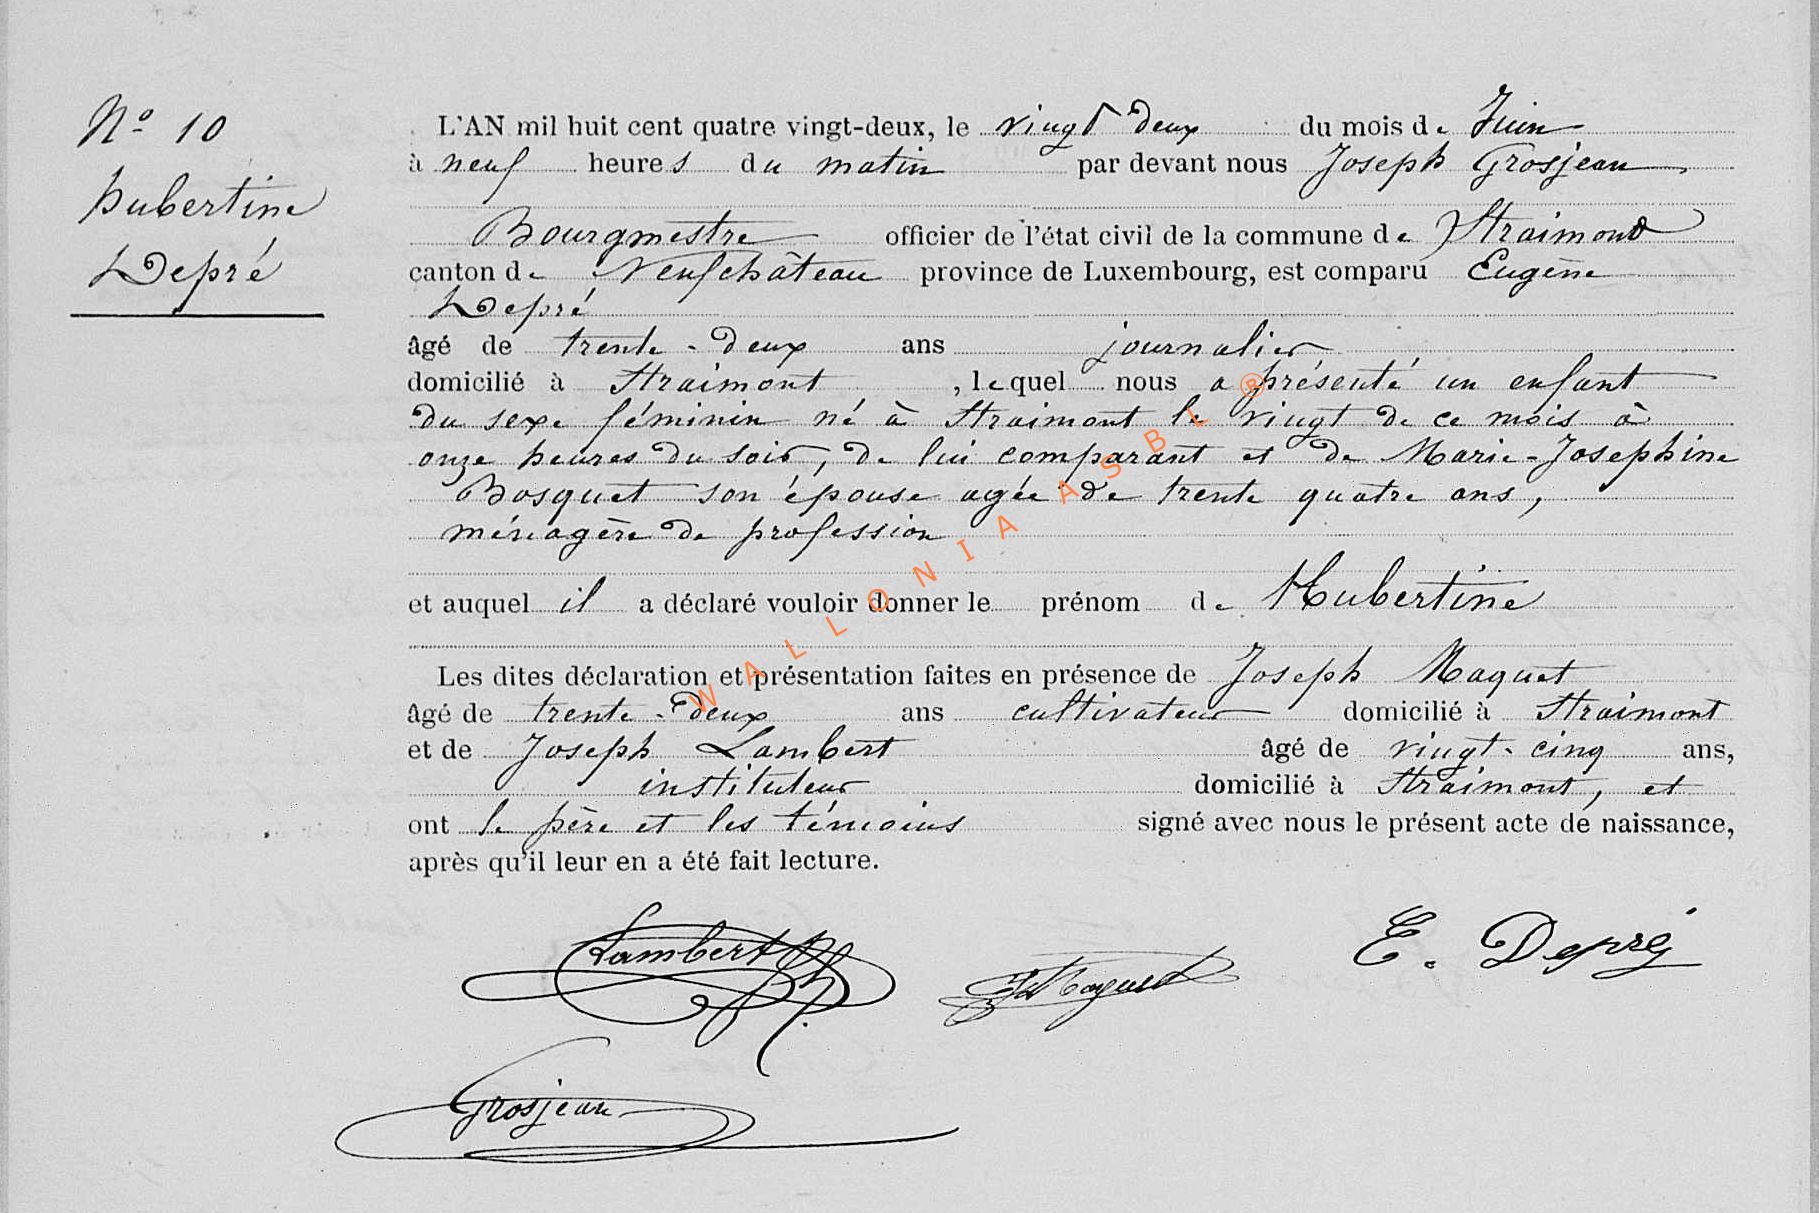 Nº 10
Hubertine
Depré
L'AN mil huit cent quatre vingt-deux, le vingt deux du mois de Juin
à neuf heures du matin par devant nous Joseph Grosjean
Bourgmestre officier de l'état civil de la commune de Straimont
canton de Neufchâteau province de Luxembourg, est comparu Eugène
Depré
âgé de trente-deux ans journalier
domicilié à Straimont, lequel nous a présenté un enfant
du sexe féminin né à Straimont le vingt de ce mois à
onze heures du soir, de lui comparant et de Marie-Josephine
Bosquet son épouse agée de trente quatre ans,
ménagère de profession
et auquel il a déclaré vouloir donner le prénom de Hubertine
Les dites déclaration et présentation faites en présence de Joseph Maquet
âgé de trente-deux ans cultivateur domicilié à Straimont
et de Joseph Lambert âgé de vingt-cinq ans,
instituteur domicilié à Straimont, et
ont le père et les témoins signé avec nous le présent acte de naissance,
après qu'il leur en a été fait lecture.
Lambert J. Maquet E. Depré
Grosjean
WALLONIA ASBL ®